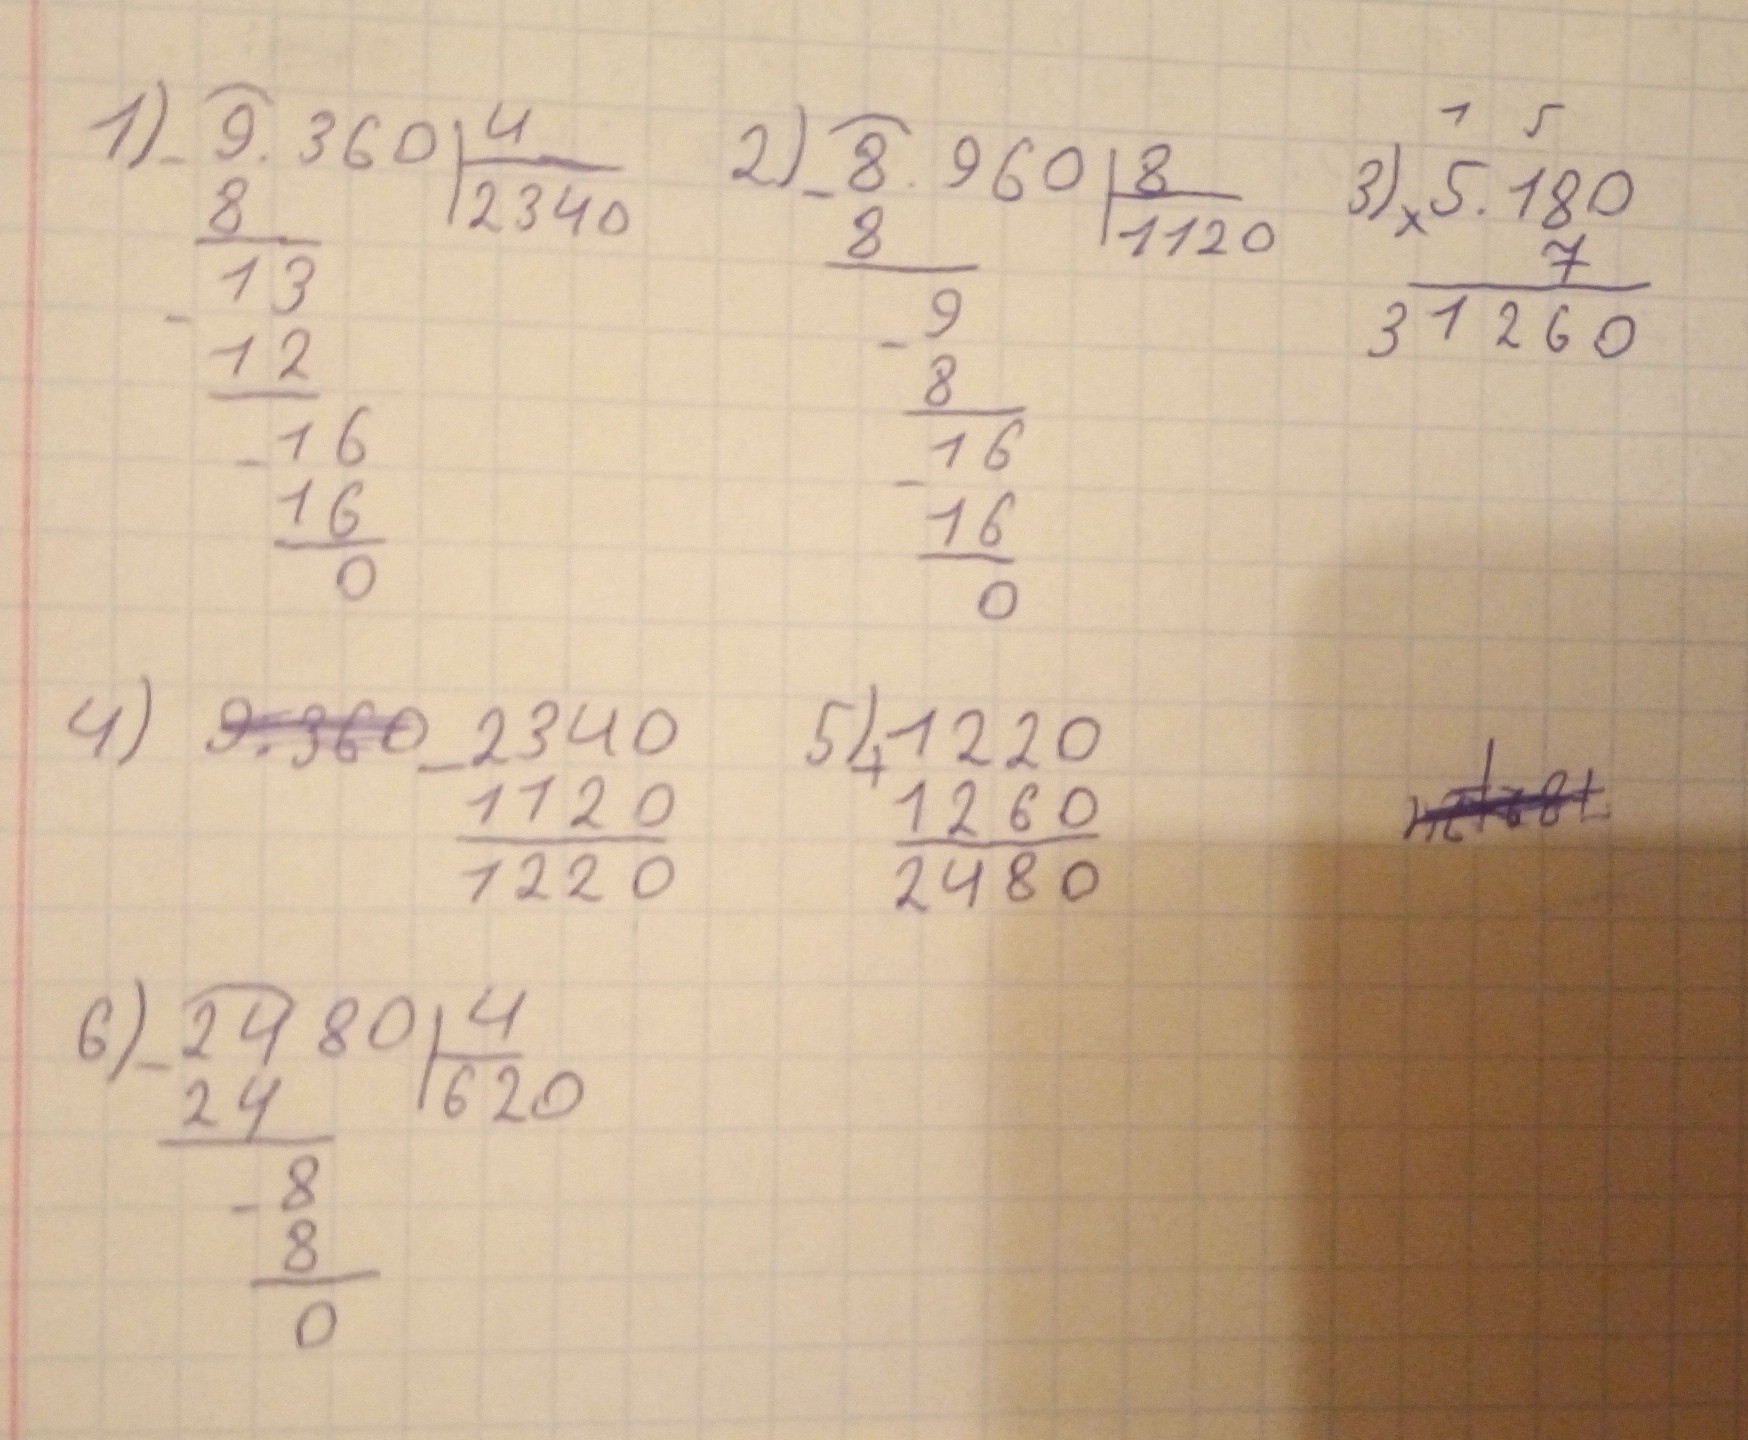 1) - 9.360 | 4
8 2340
13
- 12
- 16
16
0
2) - 8.960 | 8
8 1120
9
- 8
16
- 16
0
1 5
3) x 5.180
7
31260
4) 9.360 - 2340
1120
1220
5) + 1220
1260
2480
6) - 2480 | 4
24 620
- 8
8
0